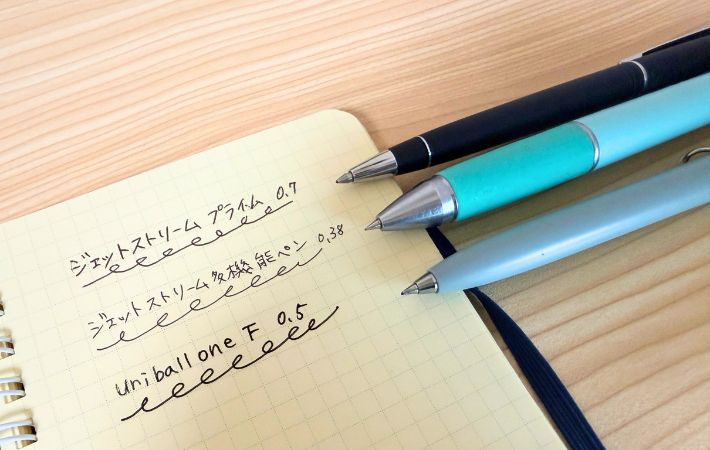 ジェットストリーム プライム 0.7
ジェットストリーム多機能ペン 0.38
uniball one F 0.5